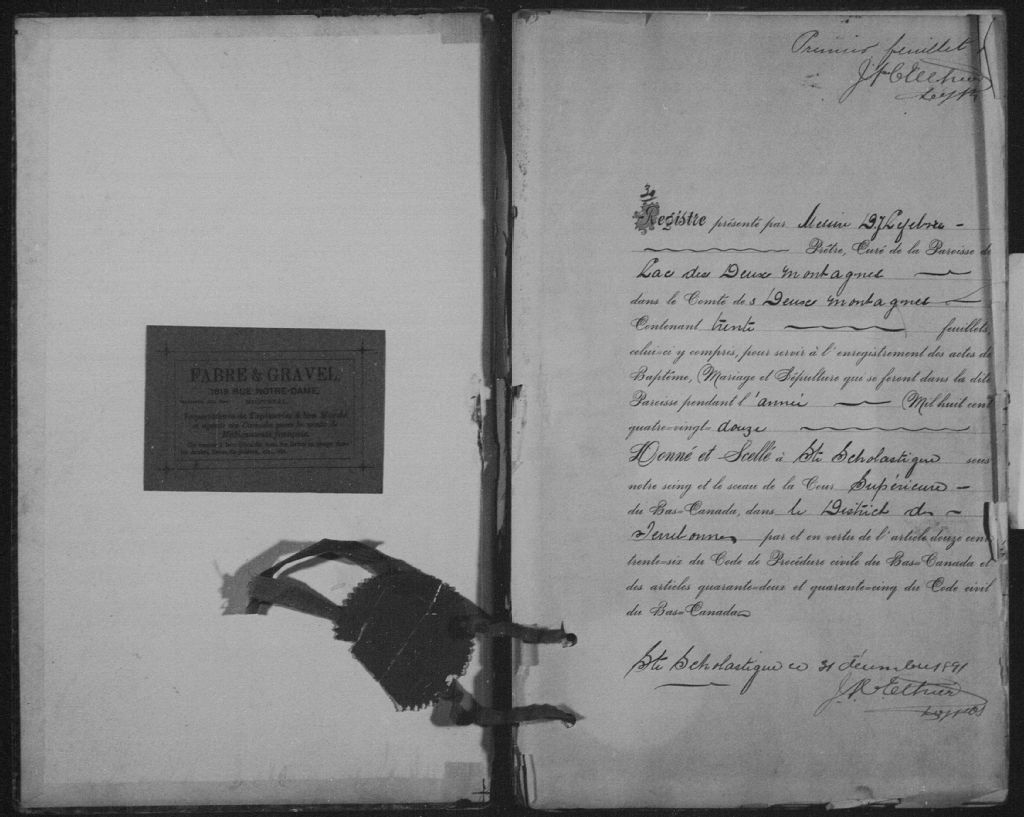 FABRE & GRAVEL,
1613 RUE NOTRE-DAME,
MONTREAL.
Importateurs de Tapisseries à bon Marché
et agents en Canada pour la vente de
Médicaments français.
Premier feuillet
30
Registre présenté par Messire Lefebvre
Prêtre, Curé de la Paroisse de
Lac des Deux montagnes
dans le Comté des Deux montagnes
Contenant trente feuillets,
celui-ci y compris, pour servir à l'enregistrement des actes de
Baptême, Mariage et Sépulture qui se feront dans la dite
Paroisse pendant l'année Mil huit cent
quatre-vingt-douze
Donné et Scellé à Ste Scholastique sous
notre seing et le sceau de la Cour Supérieure
du Bas-Canada, dans le District de
Terrebonne, par et en vertu de l'article douze cent
trente-six du Code de Procédure civile du Bas-Canada et
des articles quarante-deux et quarante-cinq du Code civil
du Bas-Canada
Ste Scholastique ce 31 décembre 1891